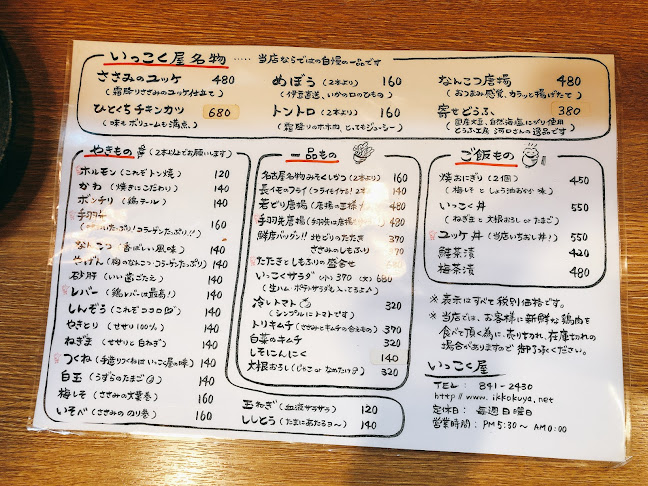 いっこく屋名物 ……当店ならではの自慢の一品です
ささみのユッケ 480
(霜降りささみのユッケ仕立て)
ひとくちチキンカツ 680
(味もボリュームも満点。)
めぼう (2本より) 160
(伊豆直送、いかの口のひもの)
トントロ (2本より) 160
(霜降りのホホ肉、とってもジューシー)
なんこつ唐揚 480
(おつまみ感覚、カラッと揚げたて)
寄せどうふ 380
(国産大豆、自然海塩にがり使用
とうふ工房 河口さんの逸品です)
やきもの (2本以上でお願いします)
ホルモン (これぞトン焼) 120
かわ (焼きにこだわり) 140
ボンチリ (鶏テール) 140
手羽
コラーゲンたっぷり!!) 160
なんこつ (香ばしい風味) 140
やげん (胸のなんこつ コラーゲンたっぷり) 140
砂肝 (いい歯ごたえ) 140
レバー (鶏レバーは最高!) 140
しんぞう (これぞココロ) 140
やきとり (セセリ100%) 140
ねぎま (セセリと白ねぎ) 140
つくね (手造りつくねはいっこく屋の味) 140
白玉 (うずらのたまご) 140
梅しそ (ささみの大葉巻) 160
いそべ (ささみののり巻) 160
玉ねぎ (血液サラサラ) 120
ししとう (たまにあたるヨ〜) 140
一品もの
名古屋名物みそくしかつ (2本より) 160
長イモのフライ 140
若どり唐揚 480
手羽先唐揚 480
鮮度バツグン!! 地どりのたたき 370
ささみのしもふり 370
たたきとしもふりの盛合せ 680
いっこくサラダ (小) 370 (大) 680
(生ハム・ポテトサラダも入ってるよ)
冷しトマト 320
(シンプルにトマトです)
トリキムチ (ささみとキムチの合えもの) 370
白菜のキムチ 320
しそにんにく 140
大根おろし (じゃこ or なめたけ) 320
ご飯もの
焼おにぎり (2個) 450
(梅しそ と しょう油おかか味)
いっこく丼 550
(ねぎまと大根おろし or たまご)
ユッケ丼 (当店いちおし丼!) 550
鮭茶漬 420
梅茶漬 480
※ 表示はすべて税別価格です。
※ 当店では、お客様に新鮮な鶏肉を
食べて頂く為に、売り切れ、在庫切れの
場合がありますので 御了承ください。
いっこく屋
TEL : 841-2430
http://www.ikkokuya.net
定休日: 毎週日曜日
営業時間: PM5:30〜AM0:00